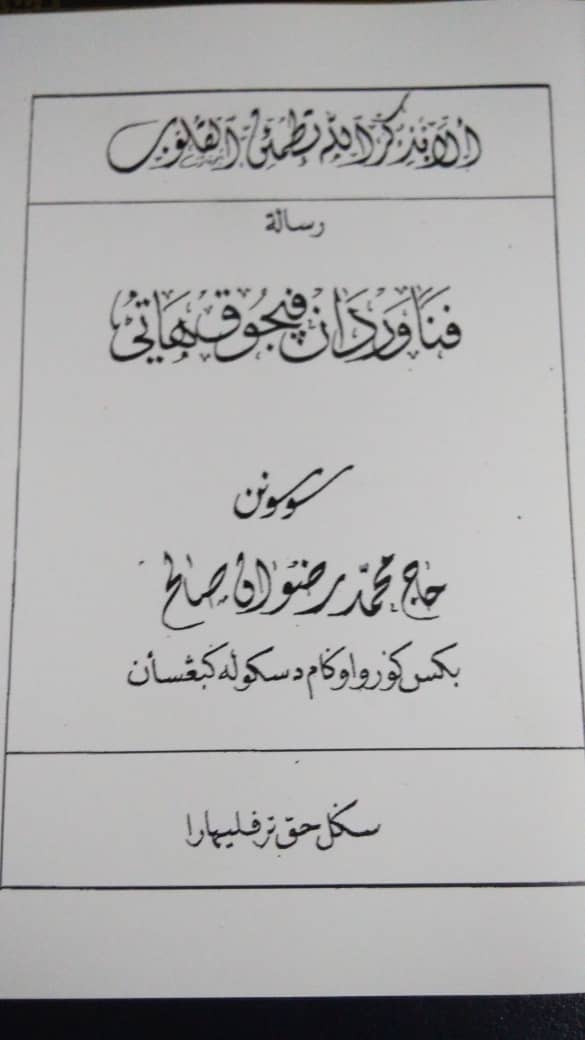 أَلَا بِذِكْرِ اللهِ تَطْمَئِنُّ الْقُلُوبُ
رسالة
فناور دان فڽجوق هاتي
سوسونن
حاج محمد رضوان صالح
بكس كورو اݢام د سكوله كبڠسأن
سݢل حق ترفليهارا